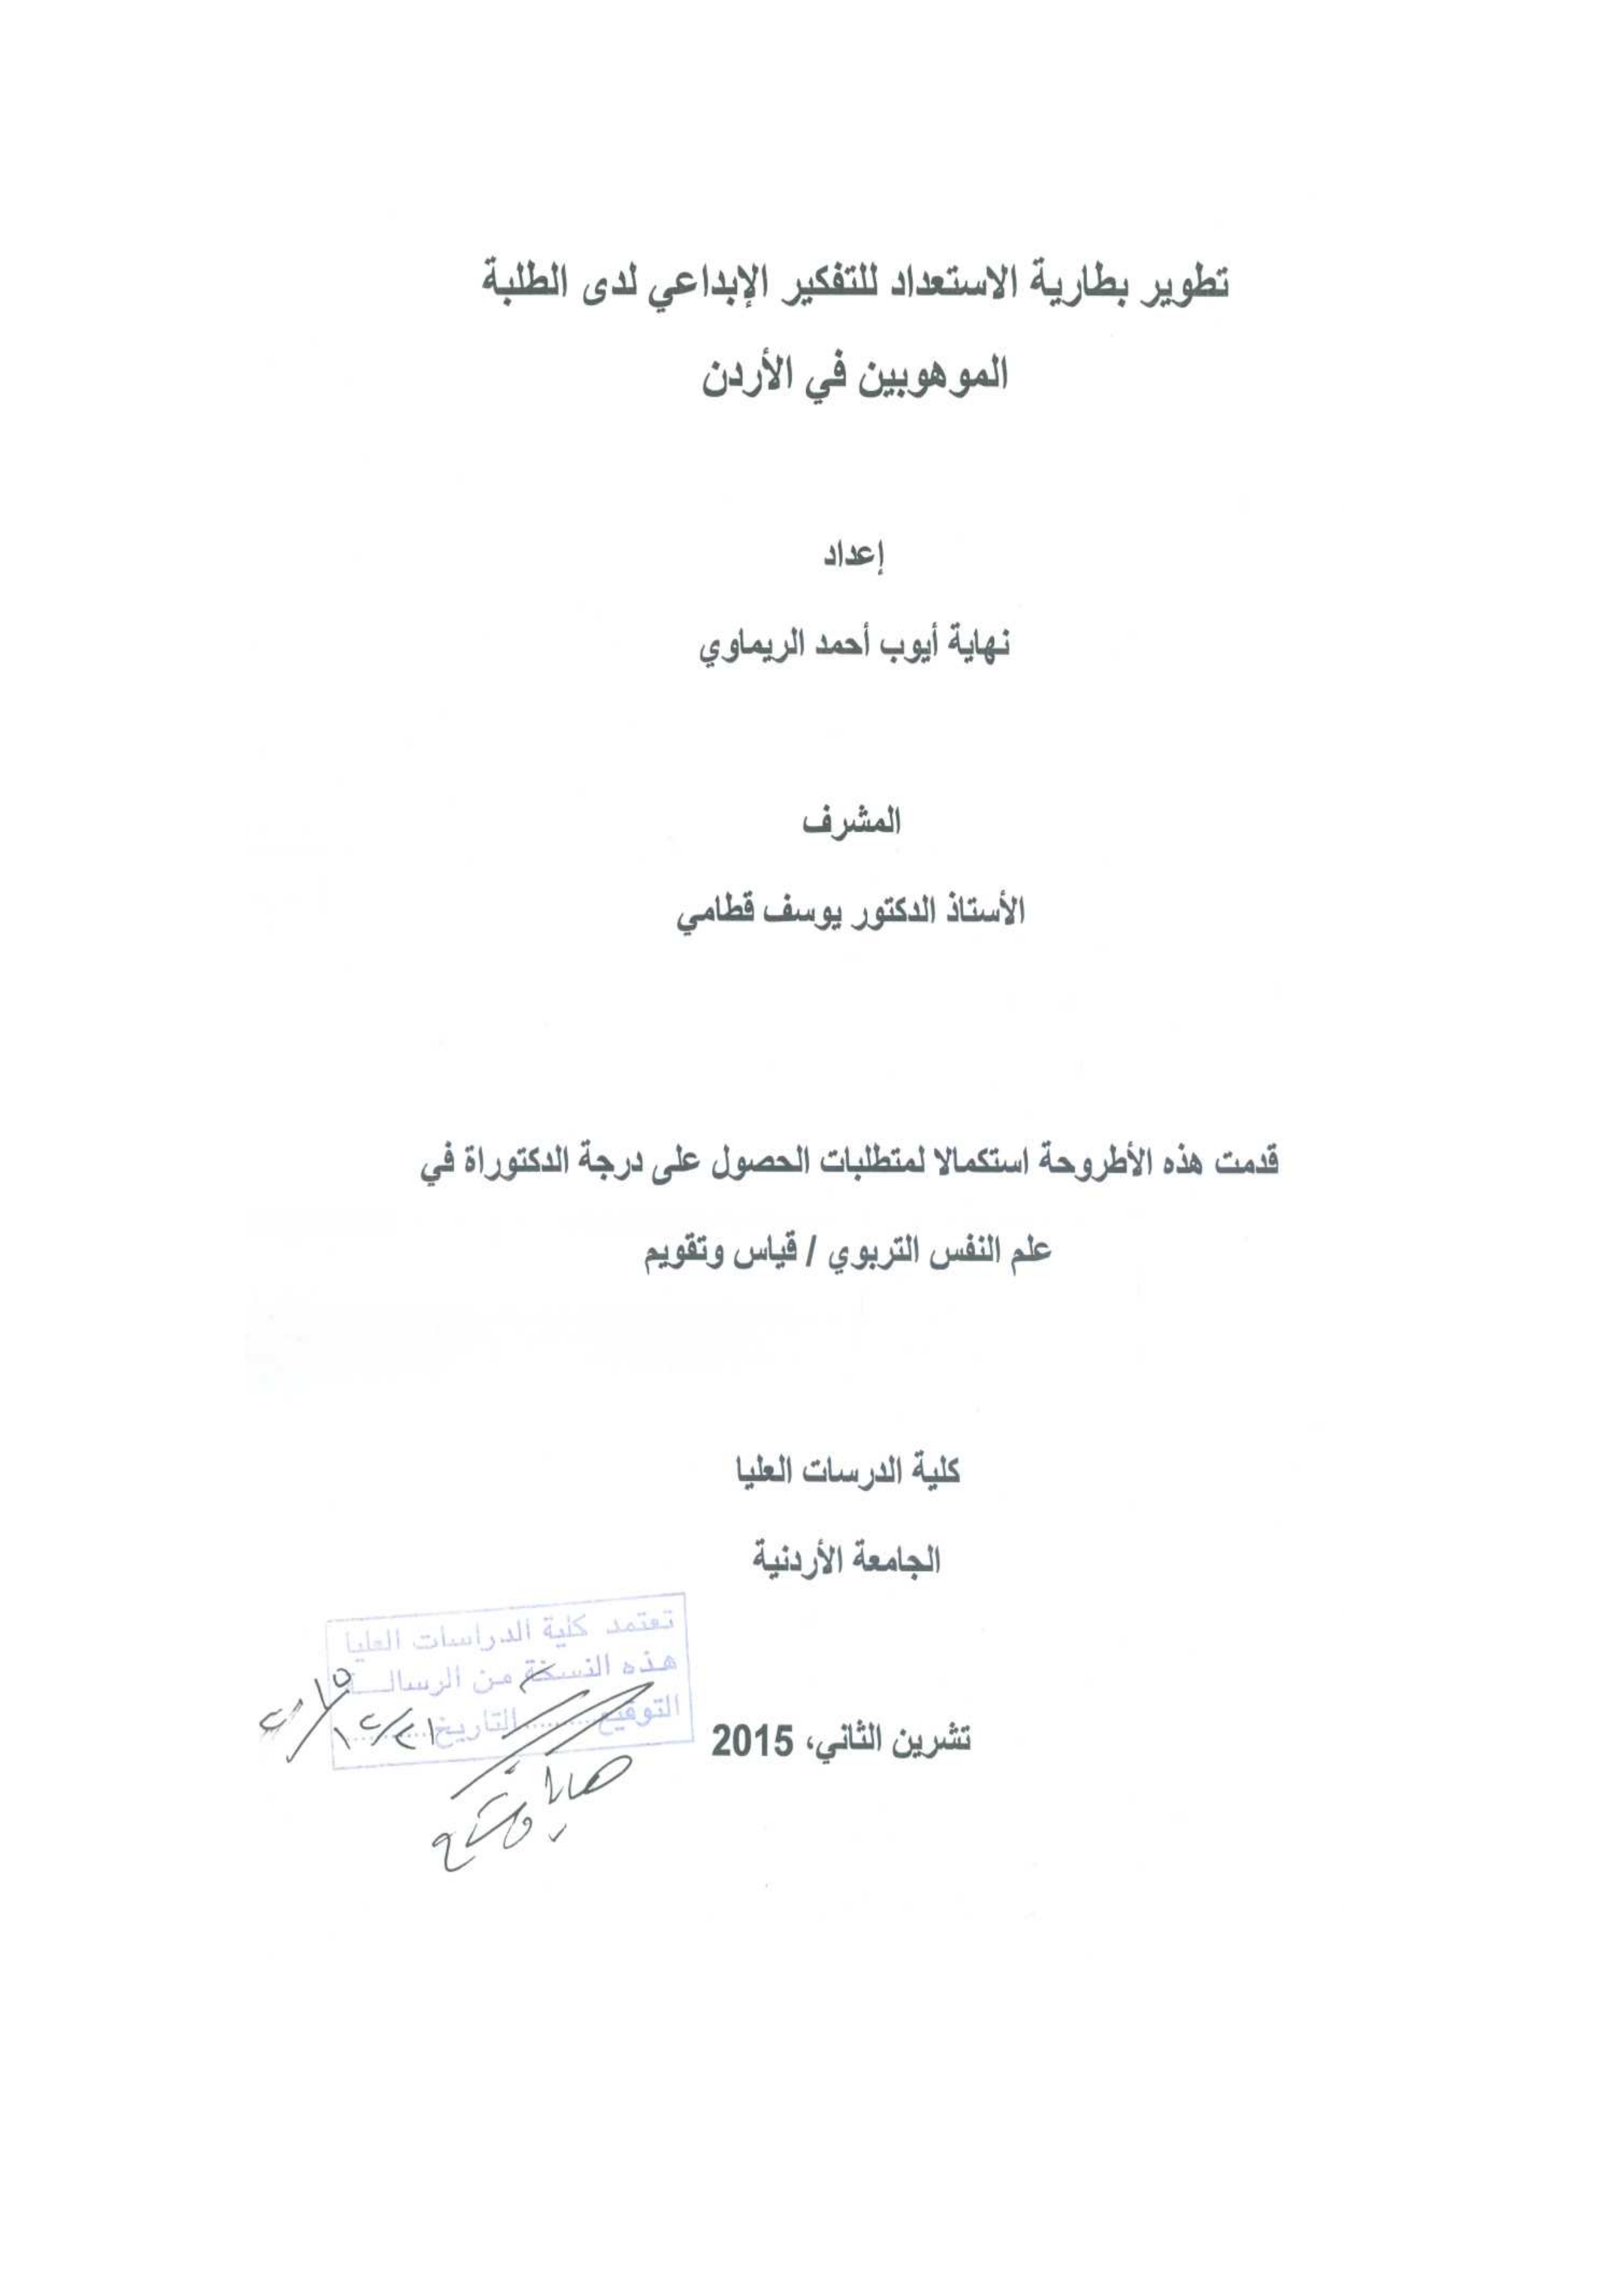 تطوير بطارية الاستعداد للتفكير الإبداعي لدى الطلبة
الموهوبين في الأردن
إعداد
نهاية أيوب أحمد الريماوي
المشرف
الأستاذ الدكتور يوسف قطامي
قدمت هذه الأطروحة استكمالا لمتطلبات الحصول على درجة الدكتوراة في
علم النفس التربوي / قياس وتقويم
كلية الدرسات العليا
الجامعة الأردنية
تعتمد كلية الدراسات العليا
هذه النسخة من الرسالـــة
التوقيع..........التاريخ..........
تشرين الثاني، 2015